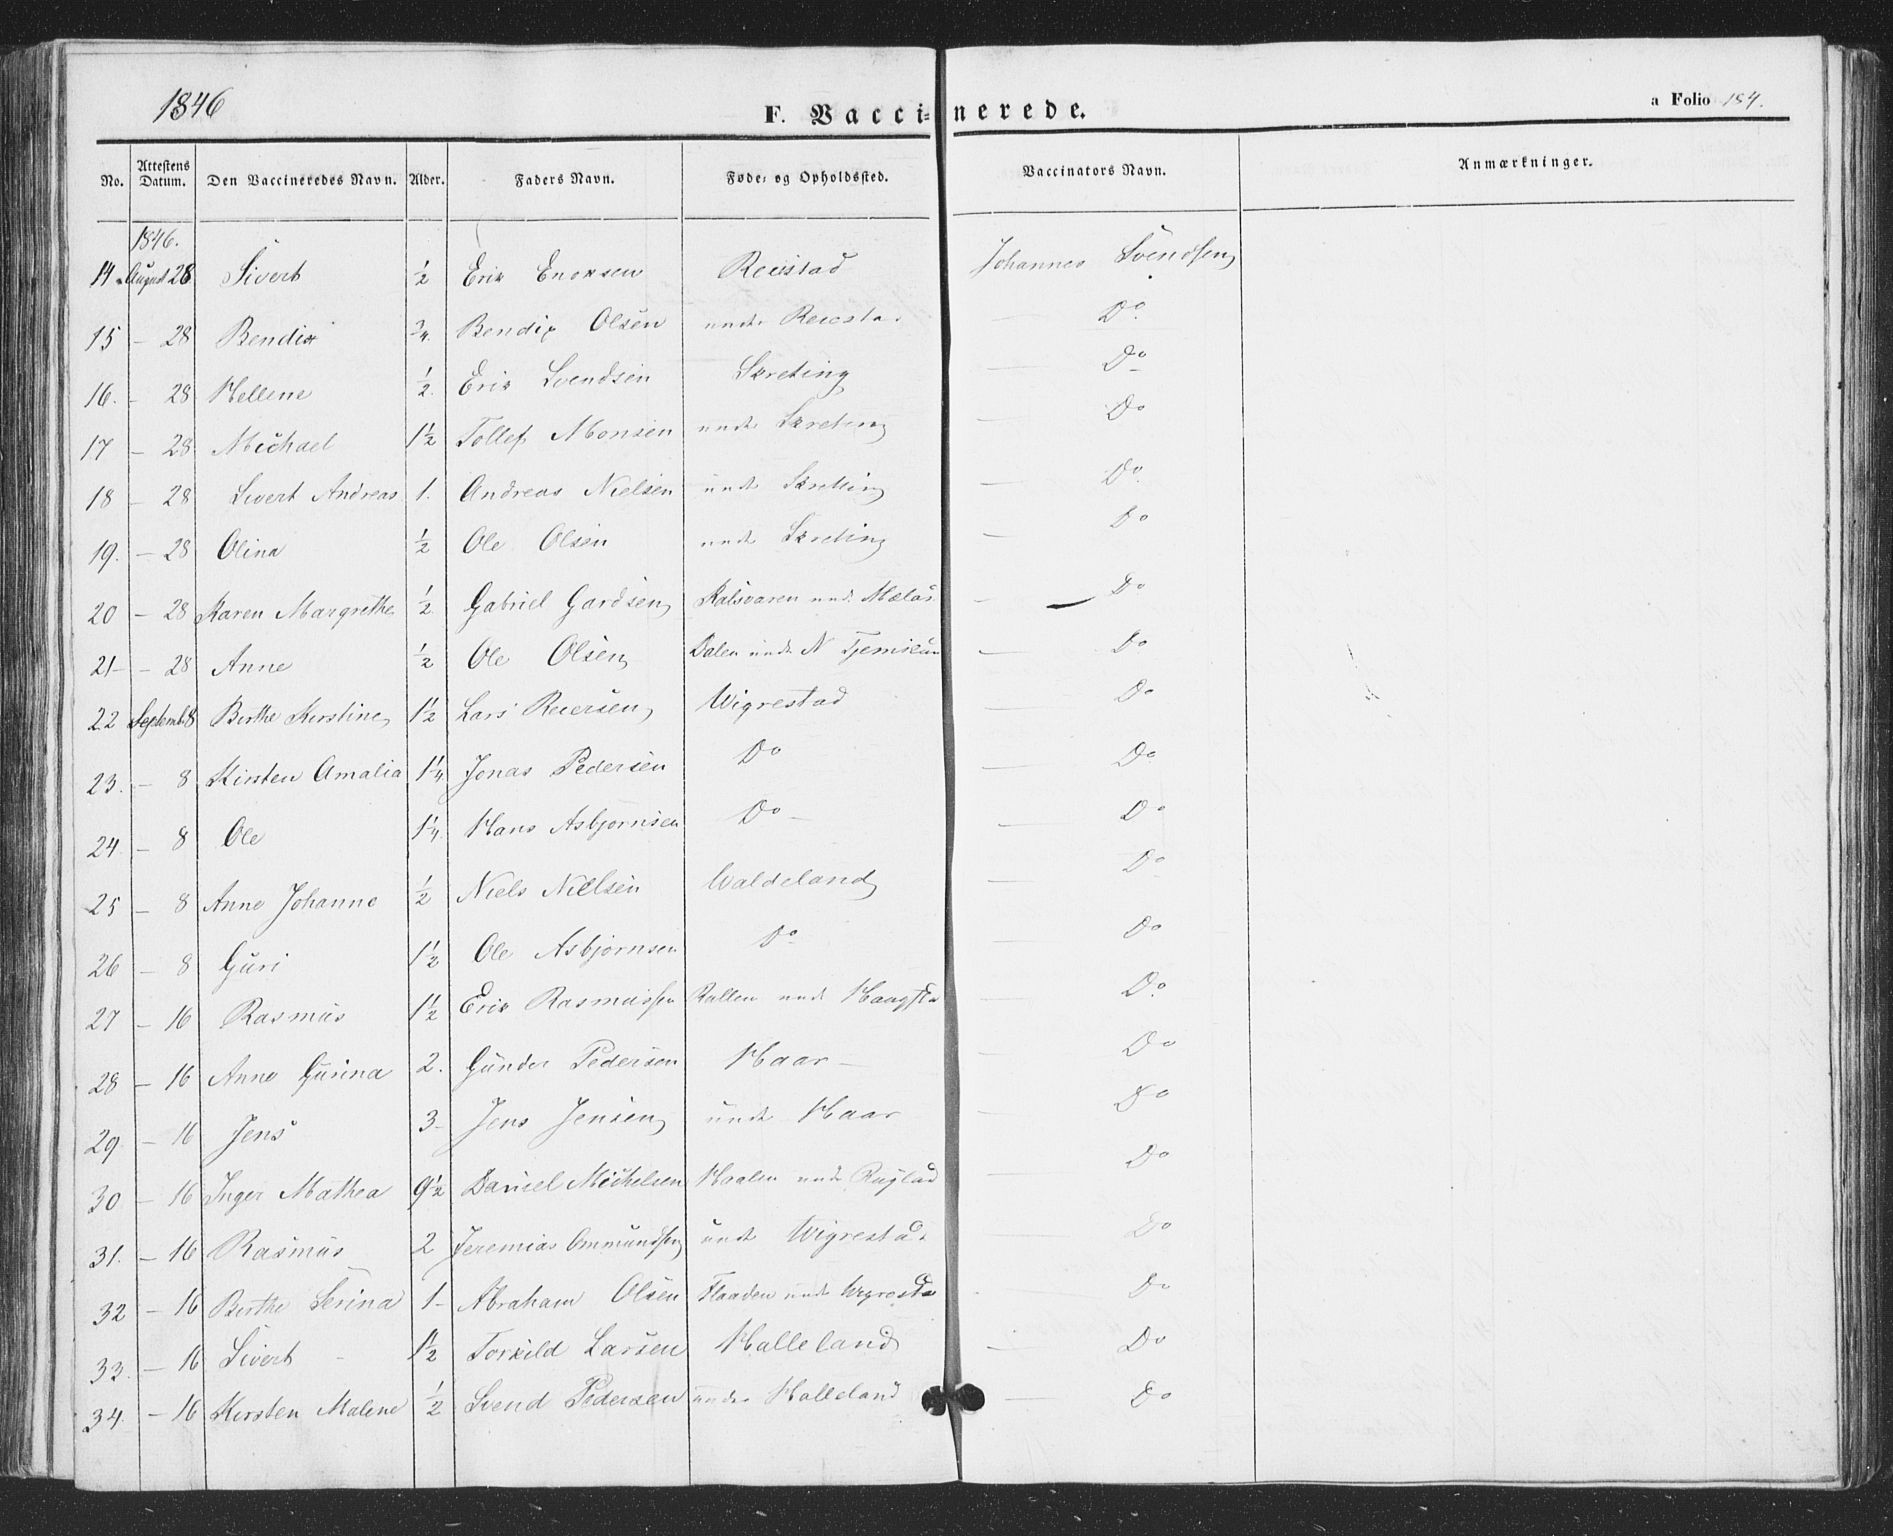 1846
F. Vaccinerede.
a Folio 184.
No. Attestens Datum. Den Vaccineredes Navn. Alder. Faders Navn. Føde- og Opholdssted. Vaccinators Navn. Anmærkninger.
1846.
14. August 28 Sivert ½ Erik Enoksen Reistad Johannes Svendsen
15 – 28 Bendix ¾. Bendix Olsen unde — Do
16. – 28 Hellene ½. Erik Svendsen Skreting — Do
17 – 28 Michael 1½ Tollef Monsen unde Skreting — Do
18 – 28 Sivert Andreas 1. Andreas Nielsen unde Skretting — Do
19. – 28 Olina ½ Ole Olsen unde Skreting — Do
20 – 28 Karen Margrethe ½ Gabriel Gardsen unde — Do
21 – 28 Anne ½ Ole Olsen Dalen unde N — Do
22 Septemb 8 Birthe Kirstine 1½ Lars Reiersen Wigrestad — Do
23. – 8 Kirsten Amalia 1¼ Jonas Pedersen Do — Do
24 – 8 Ole 1¼. Hans Asbjørnsen Do – — Do
25 – 8 Anne Johanne ½ Niels Nielsen Waldeland — Do
26 – 8 Guri 1½ Ole Asbjørnsen Do — Do
27 – 16 Rasmus 1½ Erik Rasmussen unde — Do
28 – 16 Anne Gurina 2. Gunder Pedersen Haar – — Do
29. – 16 Jens 3 – Jens Jensen unde Haar — Do
30 – 16 Inger Mathea 9½ Daniel Michelsen Haalen unde — Do
31. – 16 Rasmus 2 Jeremias Ommundsen unde Wigrestad — Do
32 – 16 Berthe Serina 1 – Abraham Olsen Flaaden unde Wigresta Do
33. – 16 Sivert 1½ Torkild Larsen Halleland — Do
34. – 16 Kirsten Malene ½ Svend Pedersen unde Halleland — Do